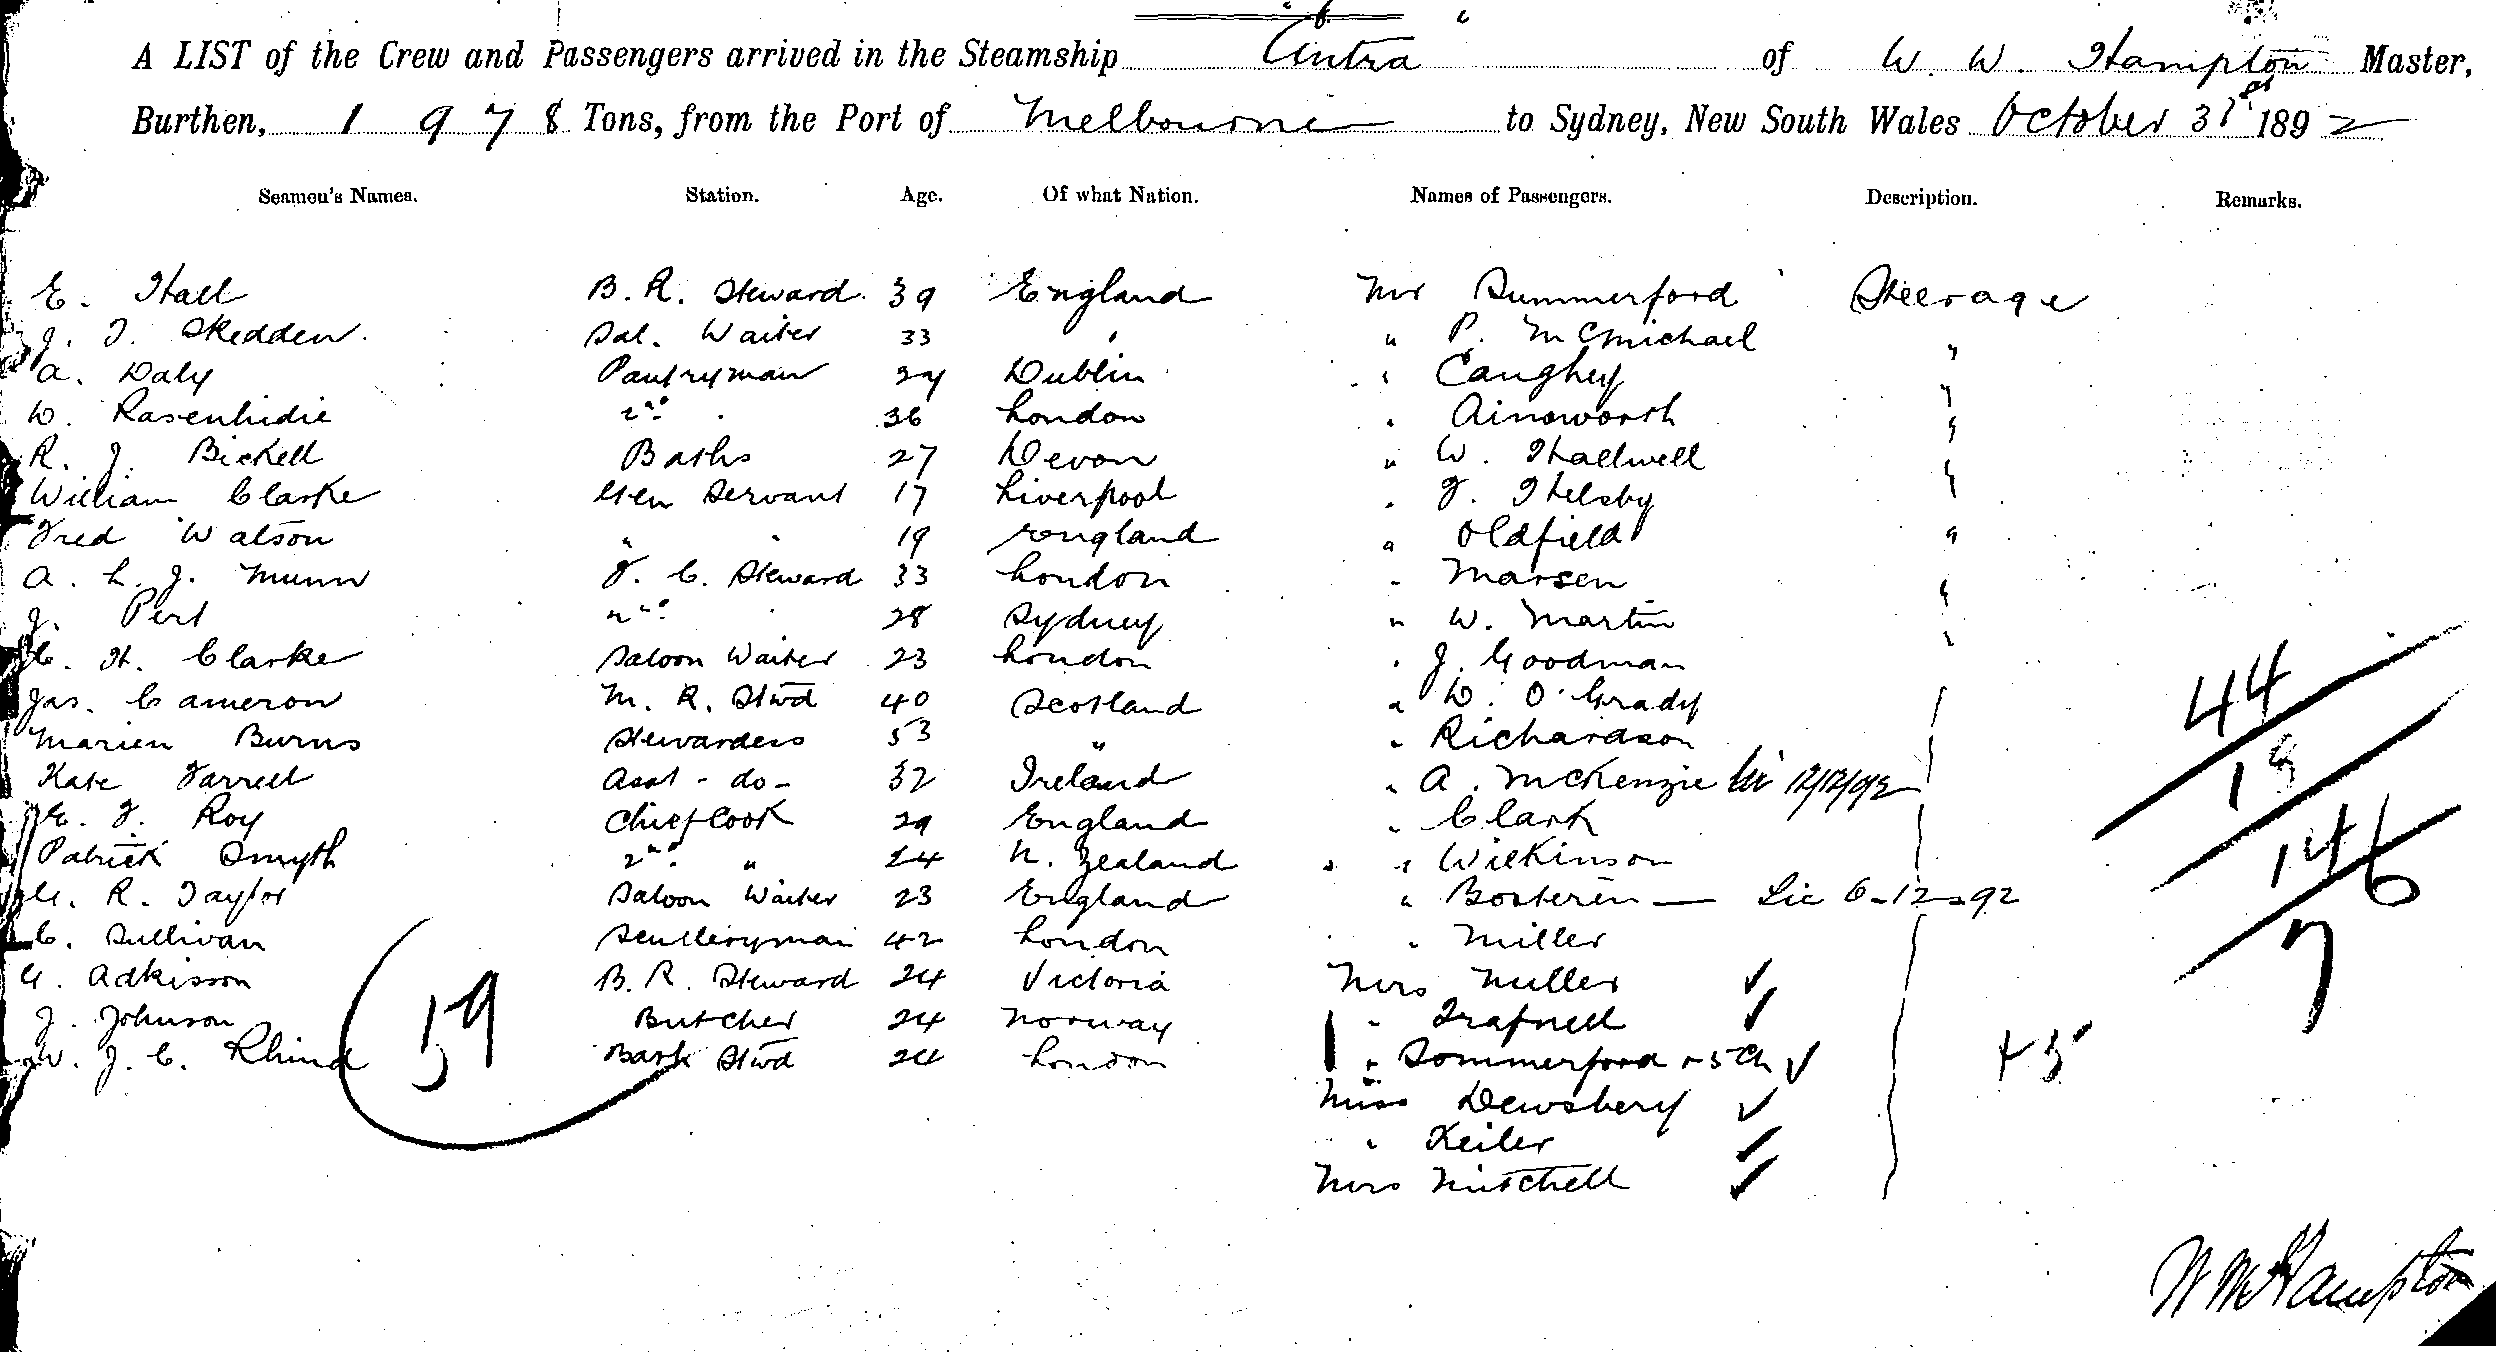 A LIST of the Crew and Passengers arrived in the Steamship Cintra of W. W. Hampton Master,
Burthen, 1978 Tons, from the Port of Melbourne to Sydney, New South Wales October 31st 1892
Seamen's Names. Station. Age. Of what Nation. Names of Passengers. Description. Remarks.
E. Hall B. R. Steward 39 England Mr Summerford Steerage
J. T. Skedden Sal. Waiter 33 " " P. McMichael "
A. Daly Pantryman 24 Dublin " Caughey "
W. 2nd " 36 London " Ainsworth "
R. J. Bickell Baths 27 Devon " W. Hallwell "
William Clarke Gen Servant 17 Liverpool " F. Helsby "
Fred Watson " " 19 England " Oldfield "
A. L. J. Munn F. C. Steward 33 London " Marsen "
J. Pert 2nd " 28 Sydney " W. Martin "
C. H. Clarke Saloon Waiter 23 London " J. Goodman
Jas. Cameron M. R. Stwd 40 Scotland " D. O'Grady
Marien Burns Stewardess 53 " " Richardson
Kate Farrell Asst - do - 32 Ireland " A. McKenzie Lic 12/12/92
F. Roy Chief Cook 29 England " Clark
Patrick Smyth 2nd " 24 N. Zealand " Wilkinson
R. Taylor Saloon Waiter 23 England " Lic 6-12-92
C. Sullivan Sculleryman 42 London " Miller
G. Adkisson B. R. Steward 24 Victoria Mrs Miller ✓
J. Johnson Butcher 24 Norway " Trafnell ✓
W. J. C. Rhind Stwd 24 London " Sommerford + 5 Ch ✓ + 5
Miss Dewsbery ✓
" Keiler ✓
Mrs Mitchell ✓
44
146
7
59
W W Hampton